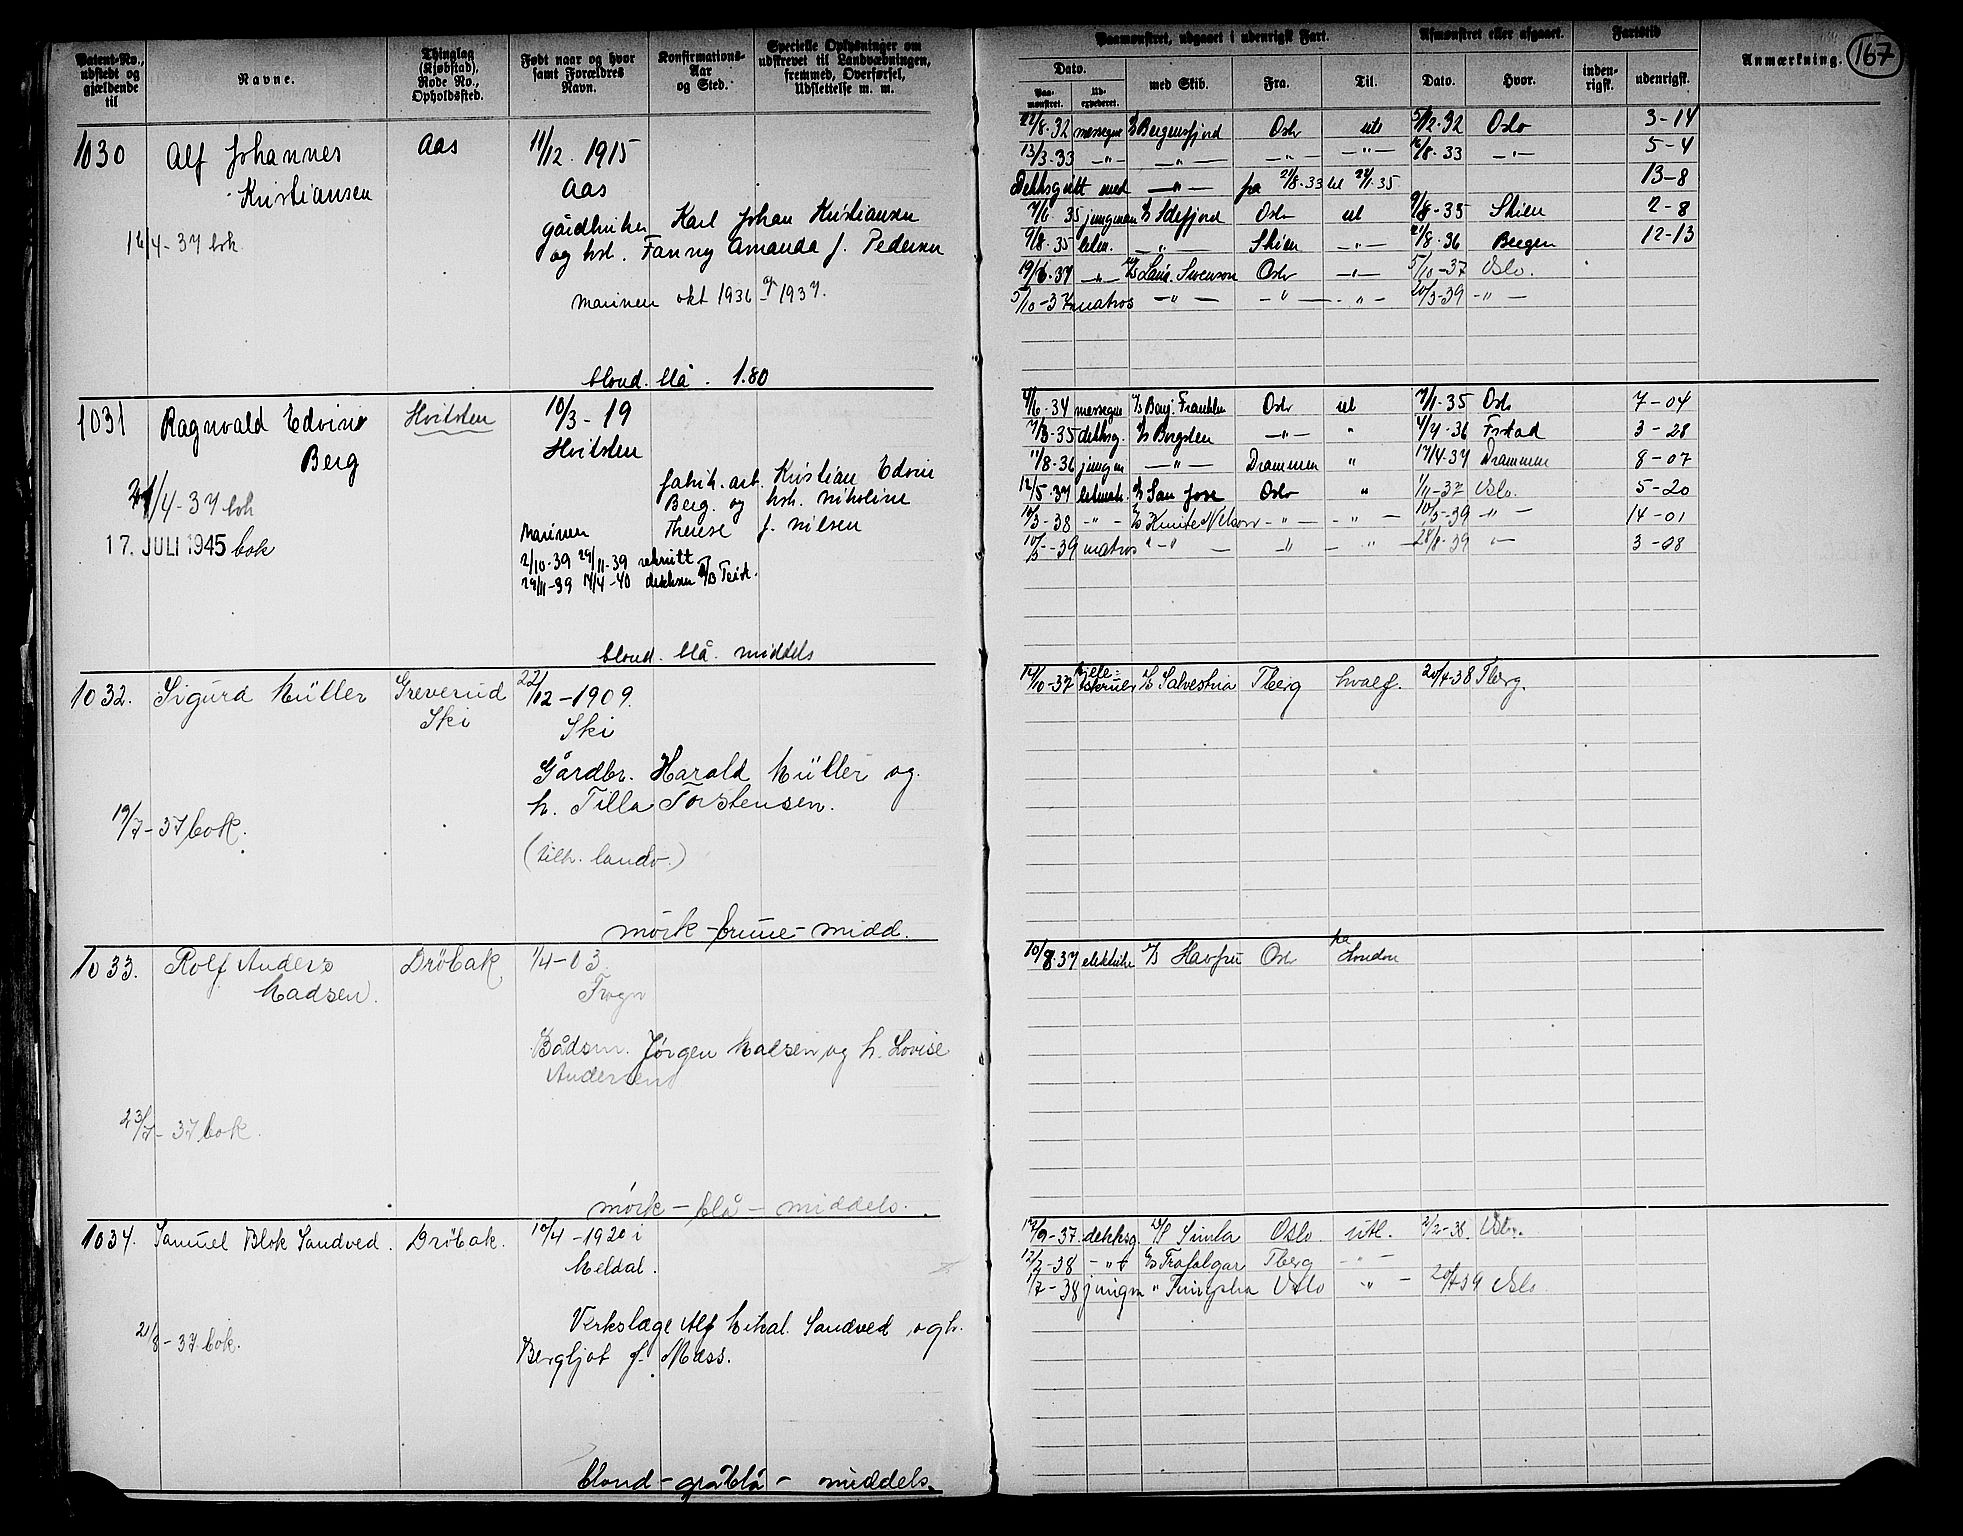 Patent-No., udstedt og gjældende til
Navne.
Thinglag (Kjøbstad), Rode No., Opholdssted.
Født naar og hvor samt Forældres Navn.
Konfirmations-Aar og Sted.
Specielle Oplysninger om udskrevet til Landværningen, fremmed, Overførsel, Udslettelse m. m.
Paamønstret, udgaaet i udenrigsk Fart.
Afmønstret eller afgaaet.
Fartstid
Anmærkning.
167
Dato.
med Skib.
Fra.
Til.
Dato.
Hvor.
inden-rigsk.
udenrigsk.
Paa-mønstret.
Ud-expederet.
1030
Alf Johannes
Kristiansen
Aas
11/12. 1915
Aas
gårdbruker Karl Johan Kristiansen
og hst. Fanny Amanda f. Pedersen
16/4-37 bok
marinen okt 1936 og 1937.
blond. blå. 1.80
22/8-32 messegut Bergensfjord Oslo utl 5/12-32 Oslo 3-14
13/3-33 -"- -"- -"- -"- /8-33 -"- 5-4
Dekksgutt med -"- fra 21/8-33 til 24/1-35 13-8
/6 35 jungman Idefjord Oslo utl 9/8-35 Skien 2-8
9/8-35 -"- Skien -"- 21/8-36 Bergen 12-13
19/6-37 -"- Swenson Oslo -"- 5/10-37 Oslo.
5/10-37 matros -"- -"- -"- 20/3-39 -"-
1031
Ragnvald Edvin
Berg
Hvitsten
10/3-19
Hvitsten
fabrik.arb. Kristian Edvin
Berg. og hst. Nikoline
Therese f. Nilsen
/4-37 bok
17. JULI 1945 bok
Marinen
2/10-39 29/11-39 rekrutt
29/11-39 14/4-40
blond. blå. middels
/6-34 messegut Benj. Franklin Oslo utl 7/1-35 Oslo 7-04
/3-35 dekksg. Borgsten -"- " 4/4-36 Fstad 3-28
11/8-36 jungm -"- Drammen " 17/4-37 Drammen 8-07
12/5-37 San Jose Oslo " 1/11-37 Oslo. 5-20
/3-38 -"- Knute Nelson -"- -"- 10/5-39 -"- 14-01
10/5-39 matros -"- -"- -"- 28/8-39 -"- 3-08
1032.
Sigurd Müller
Greverud
Ski
22/12-1909.
Ski
Gårdbr. Harald Müller og
h. Tilla Torstensen.
19/7-37 bok.
(tilh. landv.)
mörk-brune-midd.
/10-37 Salvestria Tberg hvalf. 20/4-38 Tberg.
1033.
Rolf Anders
Madsen.
Dröbak
1/4-03
Frogn
Bådsm. Jörgen Madsen og h. Lovise
Andersen
23/7-37 bok.
mörk-blå-middels.
10/8-37 Havfru Oslo London
1034.
Samuel Blok Sandved.
Dröbak.
10/4-1920 i
Meldal.
Verkslæge Alf Mikal Sandved og h.
Bergljot f. Mass.
21/8-37 bok.
blond-gråblå-middels.
/9-37. dekksg. Simla Oslo. utl. 2/2-38. Oslo.
12/2-38 -"- Trafalgar Tberg -"-
1/7-38 jungm " Tungsha Oslo -"- Oslo